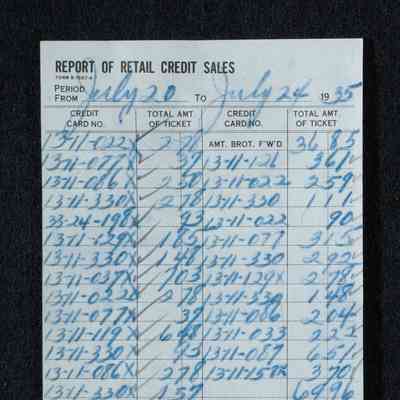 REPORT OF RETAIL CREDIT SALES
PERIOD
FROM July 20 TO July 24 1935
CREDIT CARD NO. TOTAL AMT OF TICKET CREDIT CARD NO. TOTAL AMT OF TICKET
13-11-022X 276 AMT. BROT. F'W'D 36 85
13-11-077X 37 13-11-126 361
13-11-086X 50 13-11-022 259
13-11-330X 278 13-11-330 111
33-24-198X 93 13-11-022 90
13-11-129X 185 13-11-077 315
13-11-330X 148 13-11-330 292
13-11-037X 703 13-11-129X 278
13-11-022X 278 13-11-330 148
13-11-077X 37 13-11-086 204
13-11-119X 648 13-11-033 222
13-11-330X 95 13-11-087 651
13-11-086X 278 13-11-158X 370
13-11-330X 157 6996